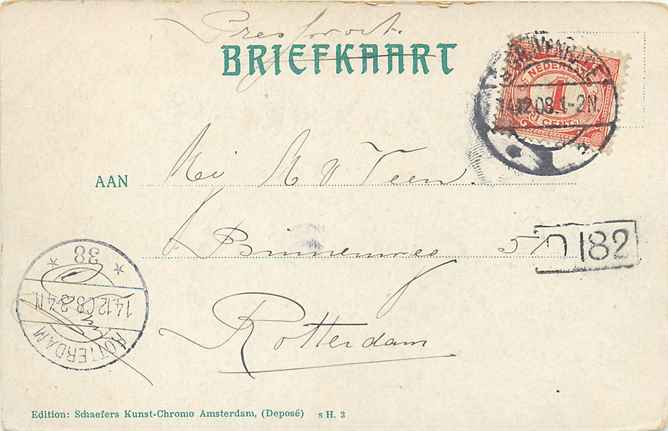 BRIEFKAART
NEDERLAND
1
CENT
14.12.08.1-2N.
AAN M V Veen.
Binnenweg 5
D 182
38
14.12.08.3-4N
ROTTERDAM
Rotterdam
Edition: Schaefers Kunst-Chromo Amsterdam, (Deposé) s H. 3